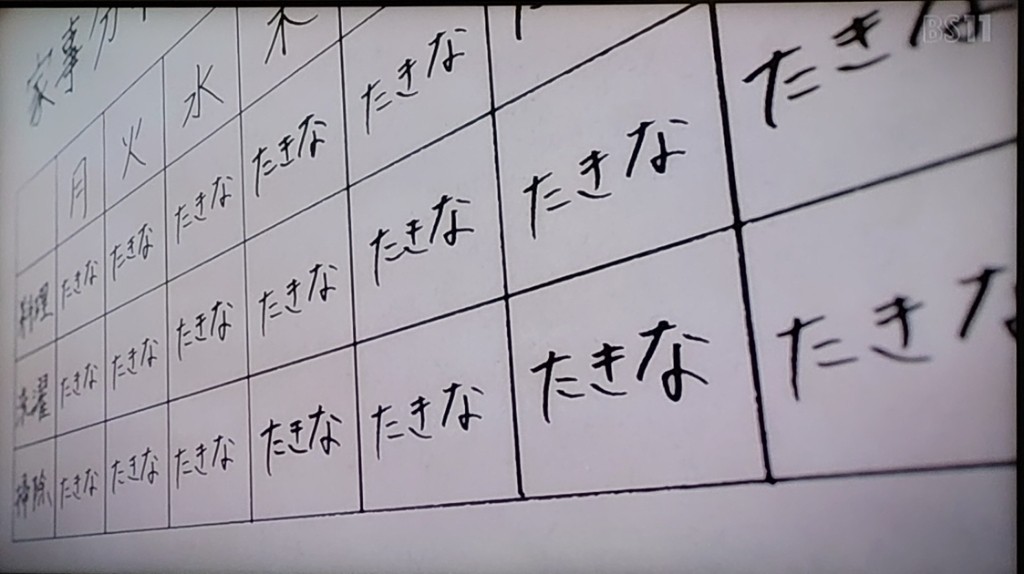 BS11
家事分
月 火 水 木
料理 たきな たきな たきな たきな たきな た たきな
洗濯 たきな たきな たきな たきな たきな たきな たきな
掃除 たきな たきな たきな たきな たきな たきな たきな